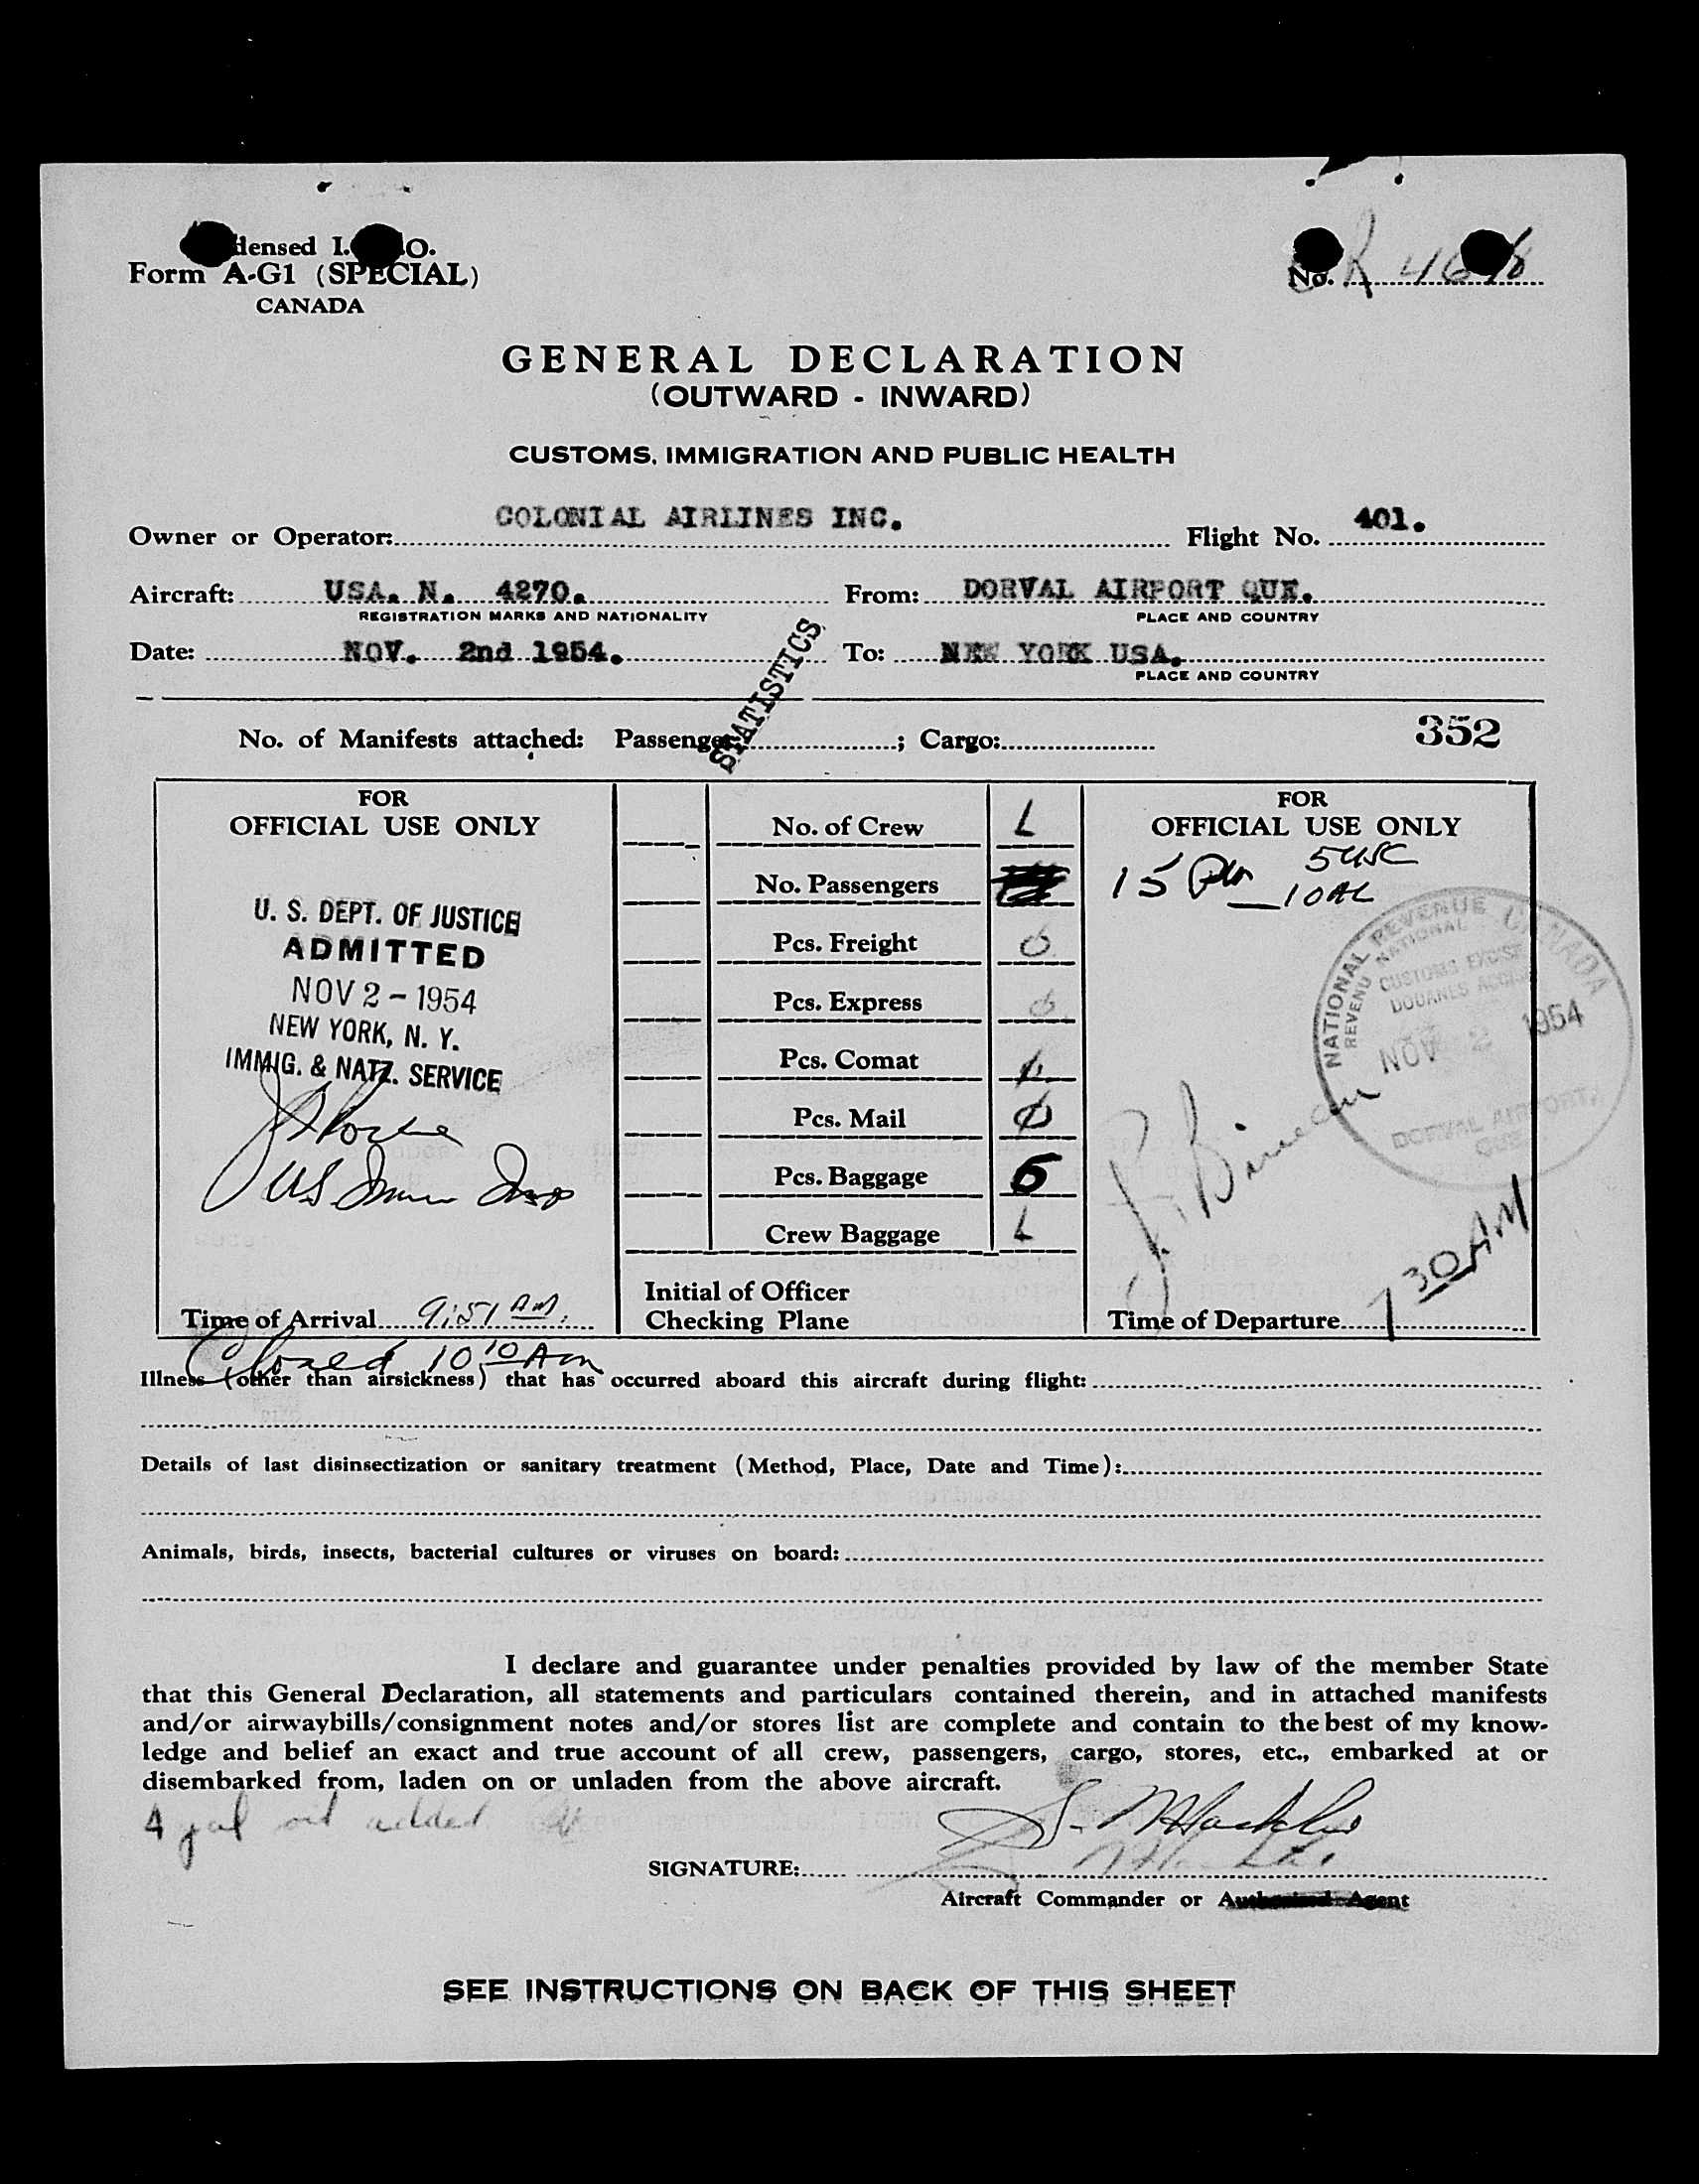 densed I. O.
Form A-G1 (SPECIAL)
CANADA
No.
GENERAL DECLARATION
(OUTWARD - INWARD)
CUSTOMS, IMMIGRATION AND PUBLIC HEALTH
Owner or Operator: COLONIAL AIRLINES INC. Flight No. 401.
Aircraft: USA. N. 4270. From: DORVAL AIRPORT QUE.
REGISTRATION MARKS AND NATIONALITY PLACE AND COUNTRY
Date: NOV. 2nd 1954. To: NEW YORK USA.
PLACE AND COUNTRY
STATISTICS
No. of Manifests attached: Passenger ; Cargo: 352
FOR
OFFICIAL USE ONLY
U. S. DEPT. OF JUSTICE
ADMITTED
NOV 2 - 1954
NEW YORK, N. Y.
IMMIG. & NATZ. SERVICE
Time of Arrival 9:51 AM.
Closed 10 10 Am
No. of Crew
No. Passengers
Pcs. Freight
Pcs. Express
Pcs. Comat
Pcs. Mail
Pcs. Baggage
Crew Baggage
Initial of Officer
Checking Plane
FOR
OFFICIAL USE ONLY
15
NATIONAL REVENUE CANADA
REVENU NATIONAL
CUSTOMS EXCISE
DOUANES ACCISE
NOV 2 1954
DORVAL AIRPORT,
QUE.
Time of Departure 7 30 AM
Illness (other than airsickness) that has occurred aboard this aircraft during flight:
Details of last disinsectization or sanitary treatment (Method, Place, Date and Time):
Animals, birds, insects, bacterial cultures or viruses on board:
I declare and guarantee under penalties provided by law of the member State
that this General Declaration, all statements and particulars contained therein, and in attached manifests
and/or airwaybills/consignment notes and/or stores list are complete and contain to the best of my know-
ledge and belief an exact and true account of all crew, passengers, cargo, stores, etc., embarked at or
disembarked from, laden on or unladen from the above aircraft.
4 gal oil added
SIGNATURE:
Aircraft Commander or Authorized Agent
SEE INSTRUCTIONS ON BACK OF THIS SHEET